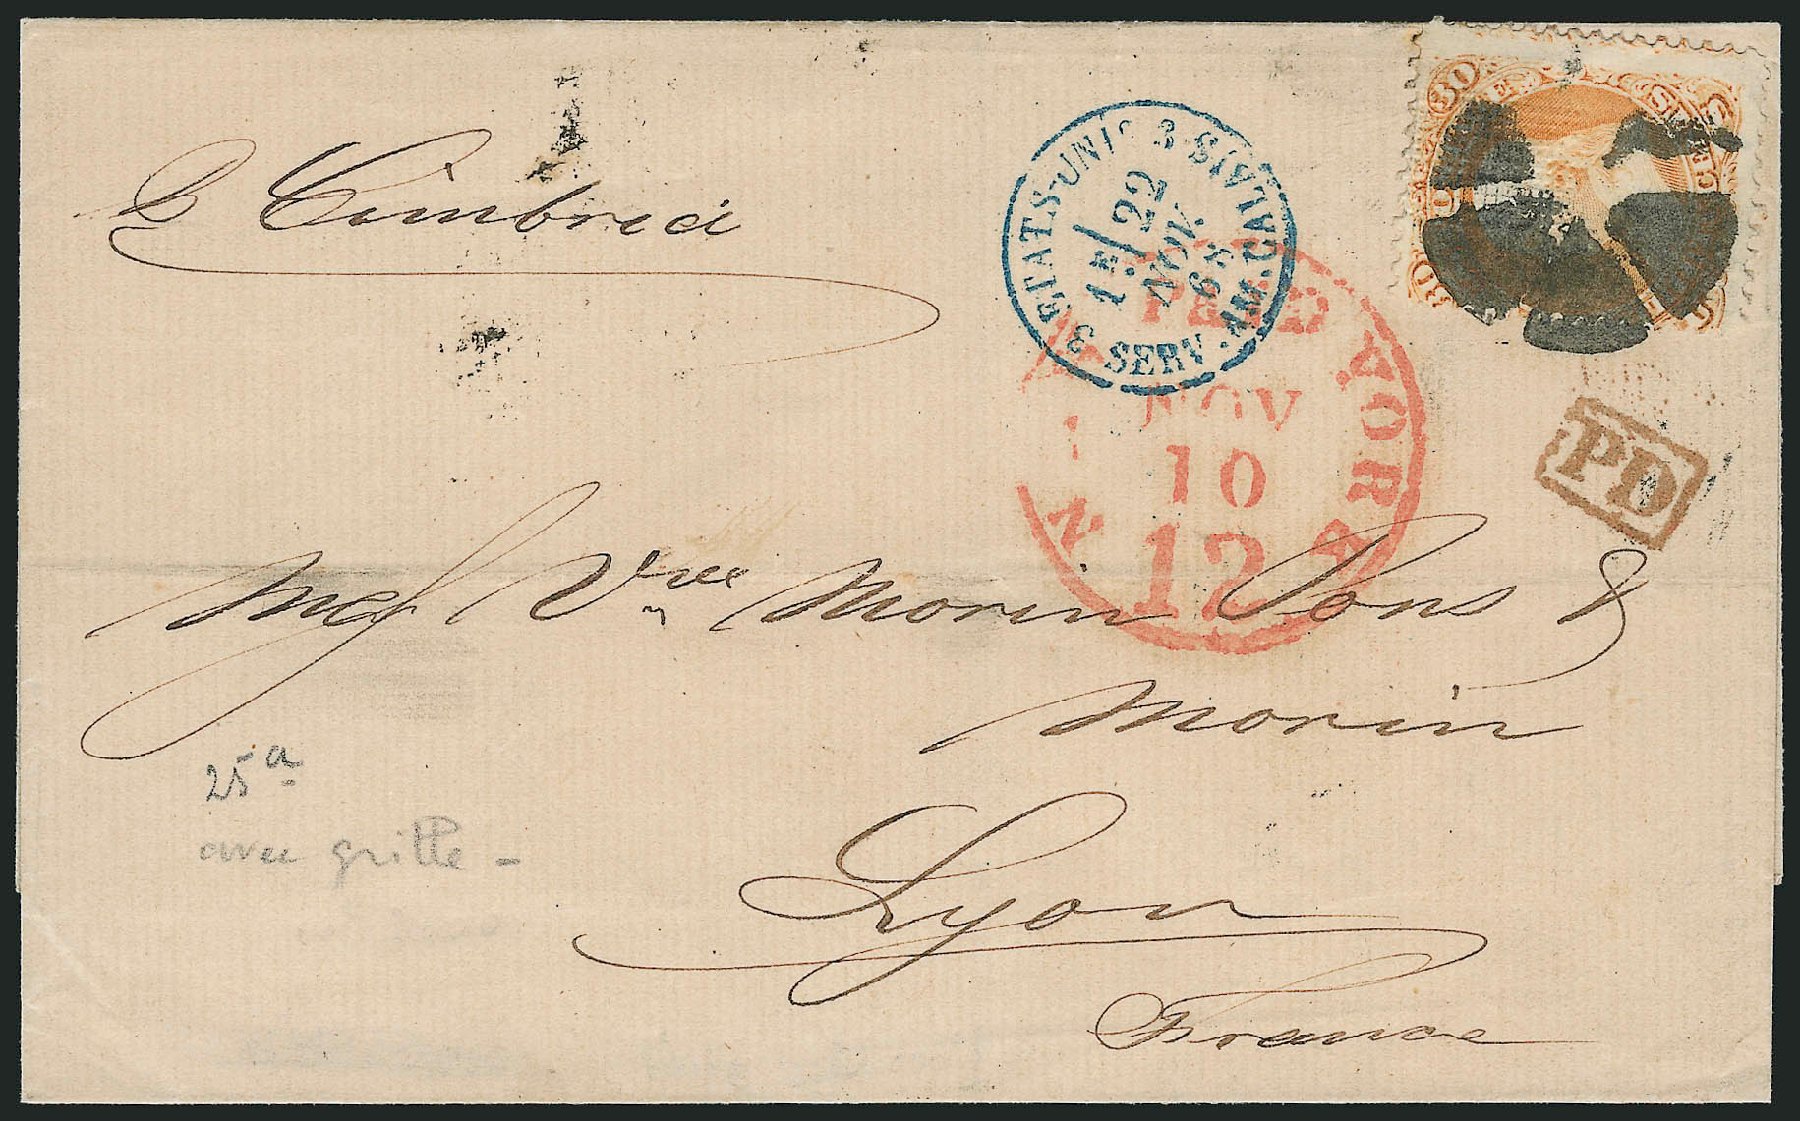 p Cimbria
3 ETATS-UNIS 3 SERV. AM. CALAIS
1E/ 22
NOV.
68
PAID
NOV
10
12
N YORK
30
PD
Mess Vve Morin Pons &
Morin
Lyon
France
25a
avec grille -